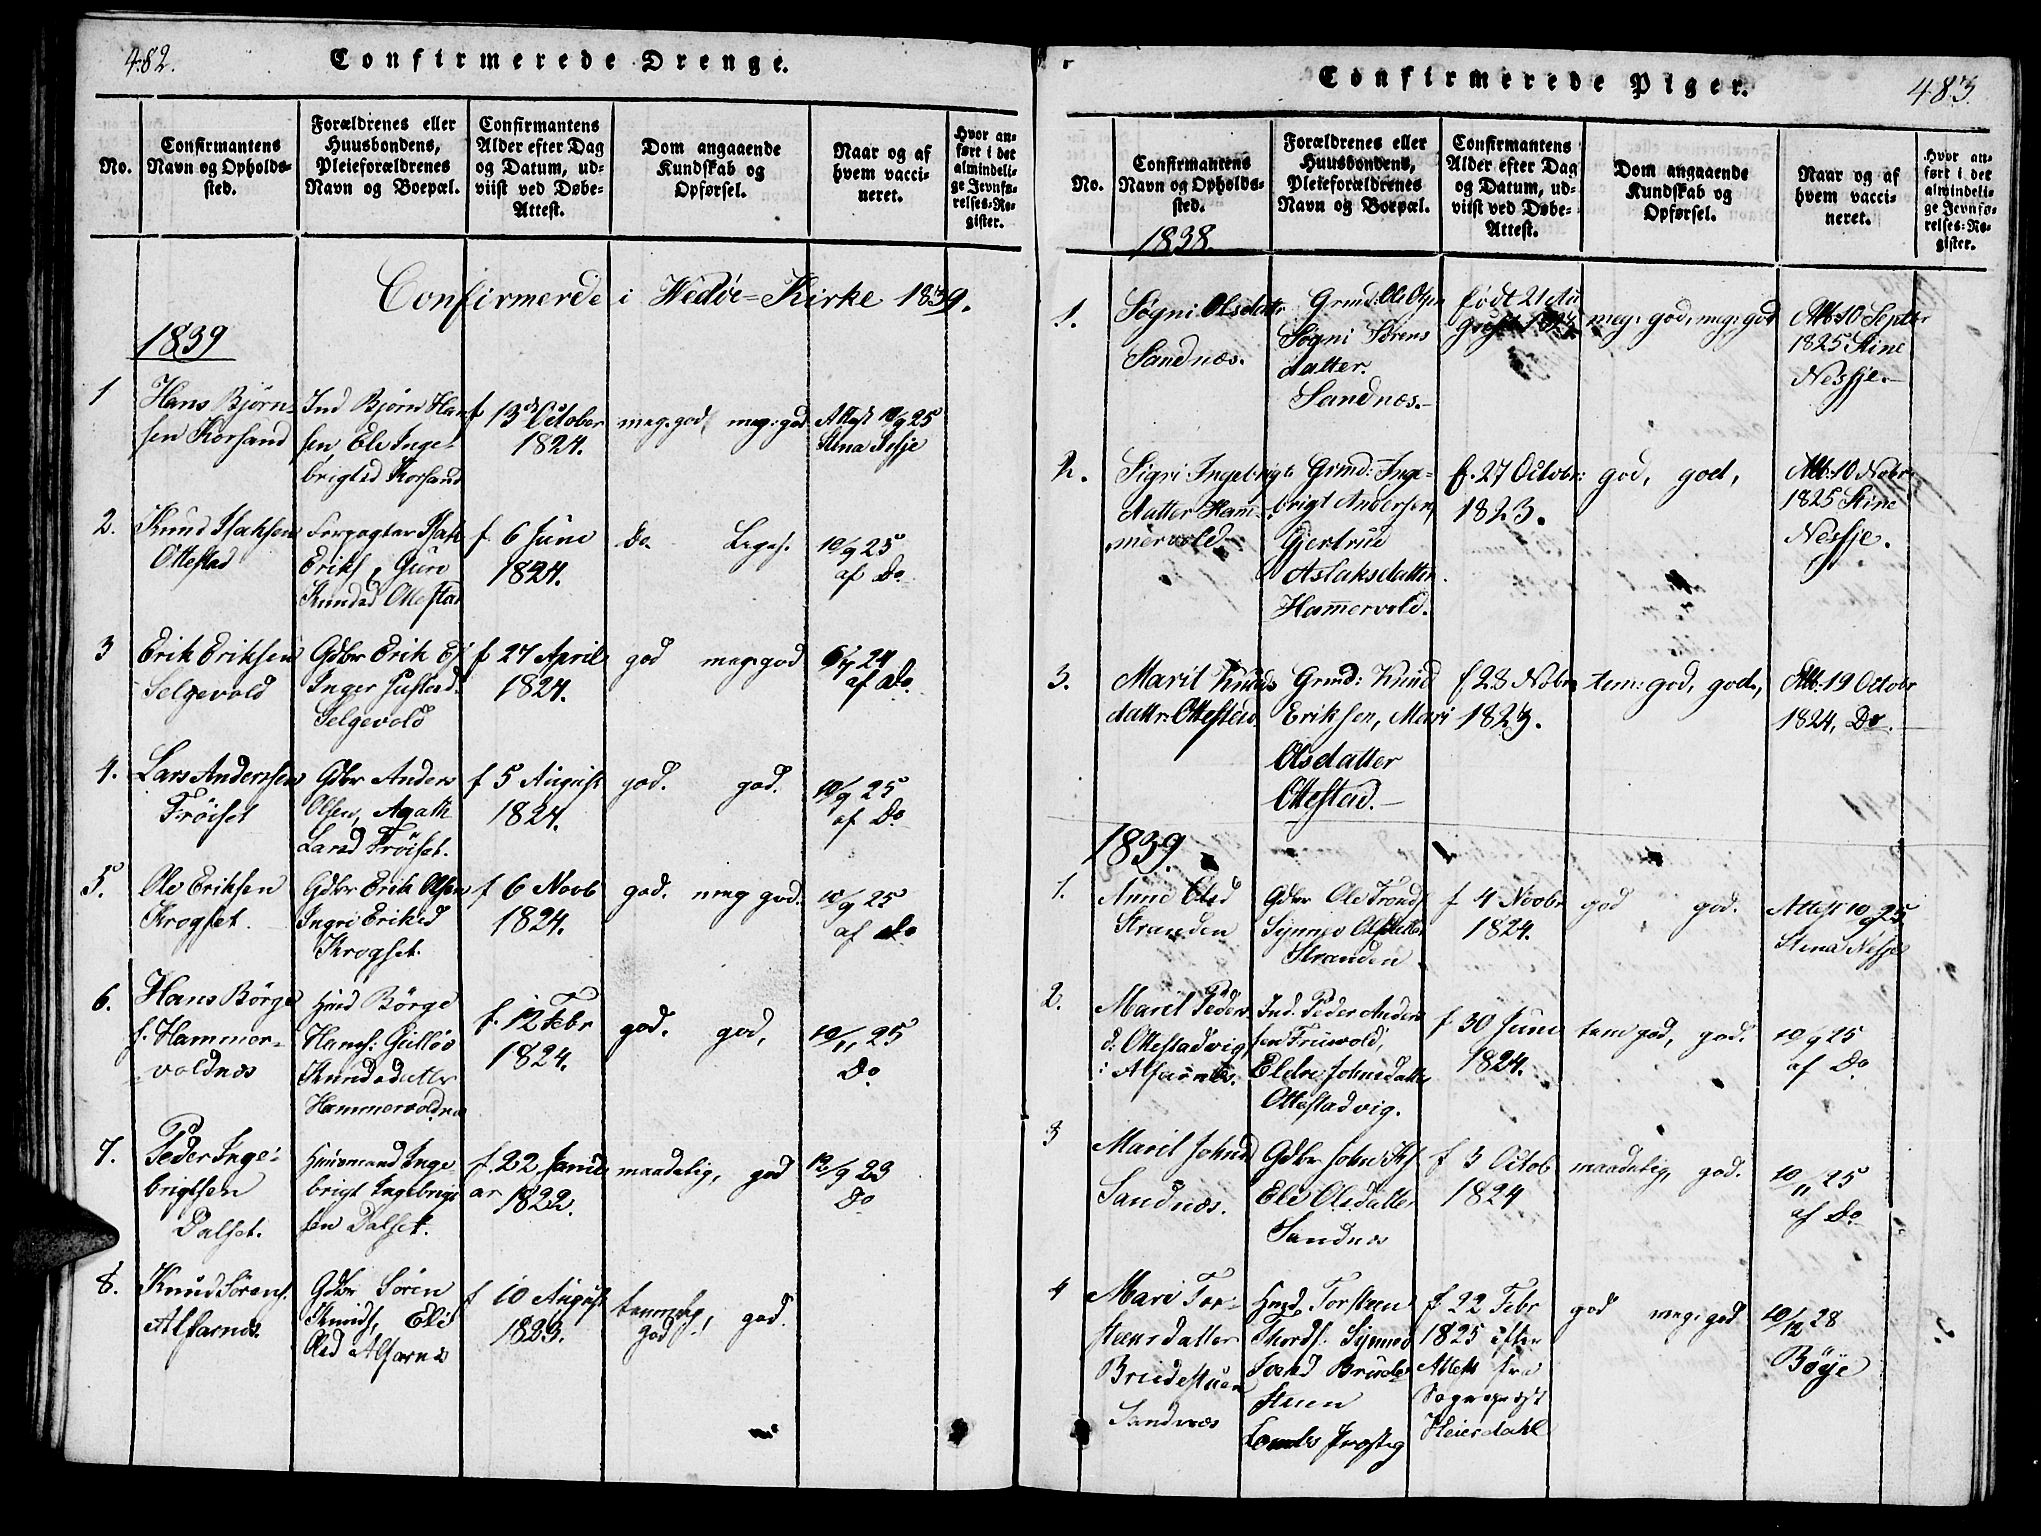 482.
Confirmerede Drenge.
No.
Confirmantens
Navn og Opholds-
sted.
Forældrenes eller
Huusbondens,
Pleieforældrenes
Navn og Boepæl.
Confirmantens
Alder efter Dag
og Datum, ud-
viist ved Døbe-
Attest.
Dom angaaende
Kundskab og
Opførsel.
Naar og af
hvem vacci-
neret.
Hvor an-
ført i det
almindeli-
ge Jevnfø-
relses-Re-
gister.
Confirmerede i Wedöe-Kirke 1839.
1839
1
Hans Björn-
sen Korsand
Ind Björn Han
sen, Ele Inge-
brigtsd Korsand
f 13de October
1824.
meg: god meg: god
Attest 10/9 25
Stena Nesje
2.
Knud Isaksen
Ottestad
Forpagter Isak
Eriks, Guro
Knudsd Ottestad
f. 6 Juni
1824.
Do.
10/9 25
af Do
3
Erik Eriksen
Selgevold
Gdbr Erik
Inger
Selgevold
f 27 April
1824.
god meg: god
24
af Do.
4.
Lars Andersen
Fröiset
Gdbr Anders
Olsen, Agath
Larsd Fröiset.
f 5 August
1824.
god. god.
10/9 25
af Do
5.
Ole Eriksen
Krogset.
Gdbr Erik Olsen
Ingri Eriksd
Krogset.
f 6 Novb
1824.
god. meg god.
10/9 25
af Do
6.
Hans Börge
s. Hammer-
voldnæs
Hmd Börge
Hans:
Knudsdatter
Hammervoldnæs
f. 12 Febr
1824.
god. god,
10/11 25
Do
7.
Peder Inge-
brigtsen
Dalset.
Huusmand Inge-
brigt Ingebrigt
sen Dalset.
f. 22 Janu
ar 1822.
maadelig, god
12/9 23
Do
8.
Knud Sörens.
Alfarnes.
Gdbr Sören
Knuds, Eli
Olsd Alfarnes
f 10 August
1823.
temmelig
god, god.
Confirmerede Piger.
483.
No.
Confirmantens
Navn og Opholds-
sted.
Forældrenes eller
Huusbondens,
Pleieforældrenes
Navn og Boepæl.
Confirmantens
Alder efter Dag
og Datum, ud-
viist ved Døbe-
Attest.
Dom angaaende
Kundskab og
Opførsel.
Naar og af
hvem vacci-
neret.
Hvor an-
ført i det
almindeli-
ge Jevnfø-
relses-Re-
gister.
1838
1.
Søgni Olsdattr
Sandnæs.
Grmd: Ole Olsen
Søgni Sørens
datter.
Sandnæs.
født 21 Au
gust 1823
meg: god, meg: god
Att: 10 Septbr
1825 Stine
Nessje.
2.
Sigri Ingebrigts
datter Ham-
mervold.
Grmd: Inge-
brigt Andersen,
Gjertrud
Aslaksdatter.
Hamervold.
f. 27 Octobr:
1823.
god, god,
Att: 10 Nobr
1825 Stine
Nessje.
3.
Marit Knuds
dattr: Ottestad.
Grmd: Knud
Eriksen, Mari
Olsdatter
Ottestad.
f 28 Nobr
1823.
tem: god, god,
Att: 19 Octobr
1824, Do.
1839.
1.
Anne Olsd
Stranden
Gdbr Ole Tronds
Synnev Olsdatter
Stranden
f 4 Novbr
1824.
god god.
Attest 10/9 25
Stena Nesje
2.
Marit Peders
d: Ottestadvig
i Alfarnes.
Ind. Peder Anders
sen
Eldre Johnsdatter
Ottestadvig.
f 30 Juni
1824.
tem god, god.
10/9 25
af Do
3
Marit Johnsd
Sandnæs.
Gdbr John
Eli Olsdatter
Sandnes
f 3 Octob
1824
maadelig, god.
10/11 25
af Do
4
Mari Tor-
steensdatter
Brudestuen
Sandnæs
Hmd Torsteen
Thords. Synnev
Brude-
stuen
Præsteg
f 22 Febr
1825 efter
Attest fra
Sognepræst
Heierdahl
god meg: god
10/12 28
Böye